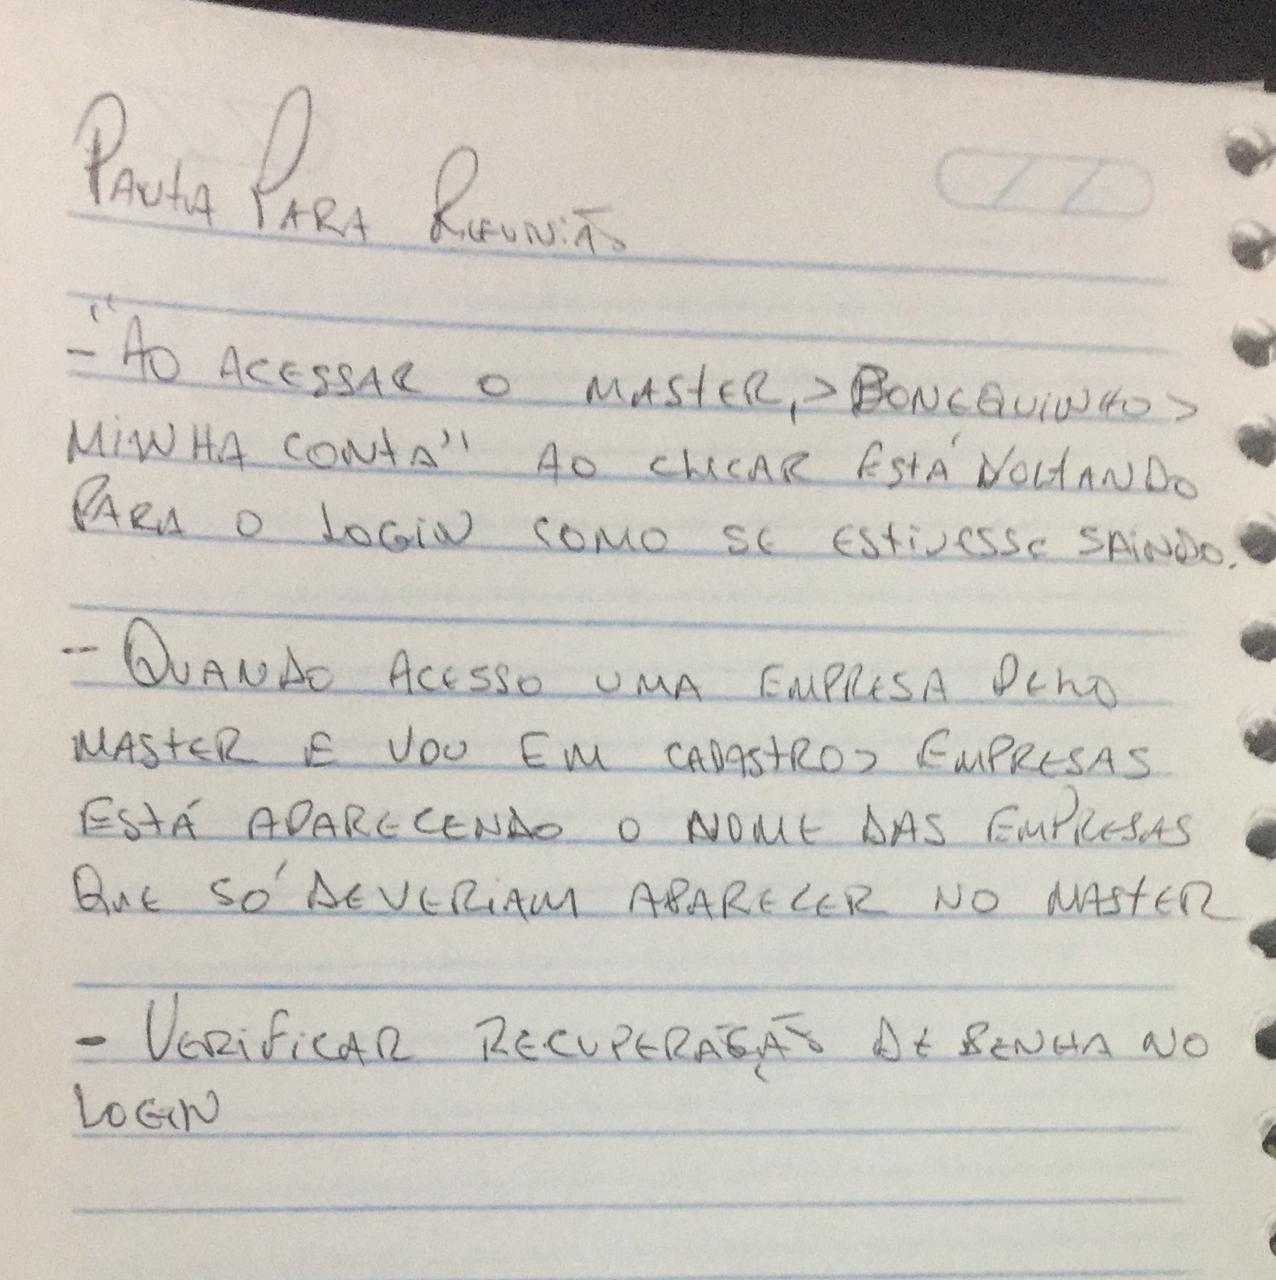 Pauta Para Reunião
- "Ao acessar o master, > Bonequinho >
minha conta" ao clicar está voltando
para o login como se estivesse saindo.
- Quando acesso uma empresa pelo
master e vou em cadastro > empresas
está aparecendo o nome das empresas
que só deveriam aparecer no master
- Verificar recuperação de senha no
login